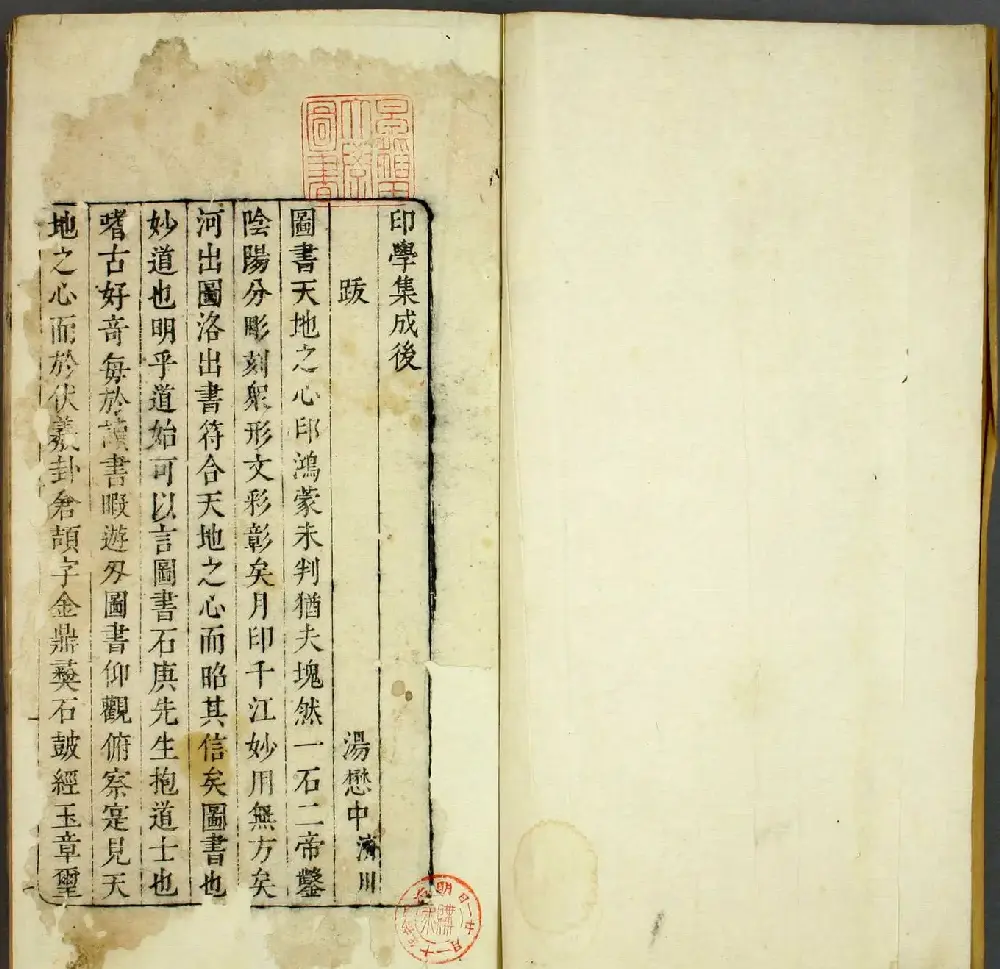 印學集成後
跋
湯懋中濟川
圖書天地之心印鴻蒙未判猶夫塊然一石二帝鑿
陰陽分彫刻衆形文彩彰矣月印千江妙用無方矣
河出圖洛出書符合天地之心而昭其信矣圖書也
妙道也明乎道始可以言圖書石庚先生抱道士也
嗜古好竒每於讀書暇遊刃圖書仰觀俯察寔見天
地之心而於伏羲卦倉頡字金鼎彝石皷經玉章璽
圖書